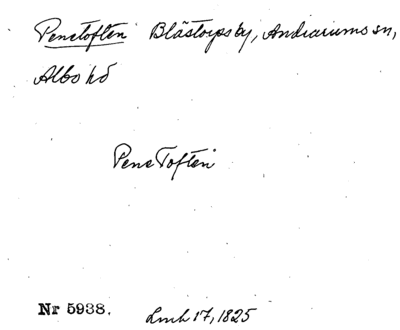 Penetoften Blåstorps by, Andrarums sn,
Albo hd
Pene Toften
Nr 5938. Lmh 17, 1825